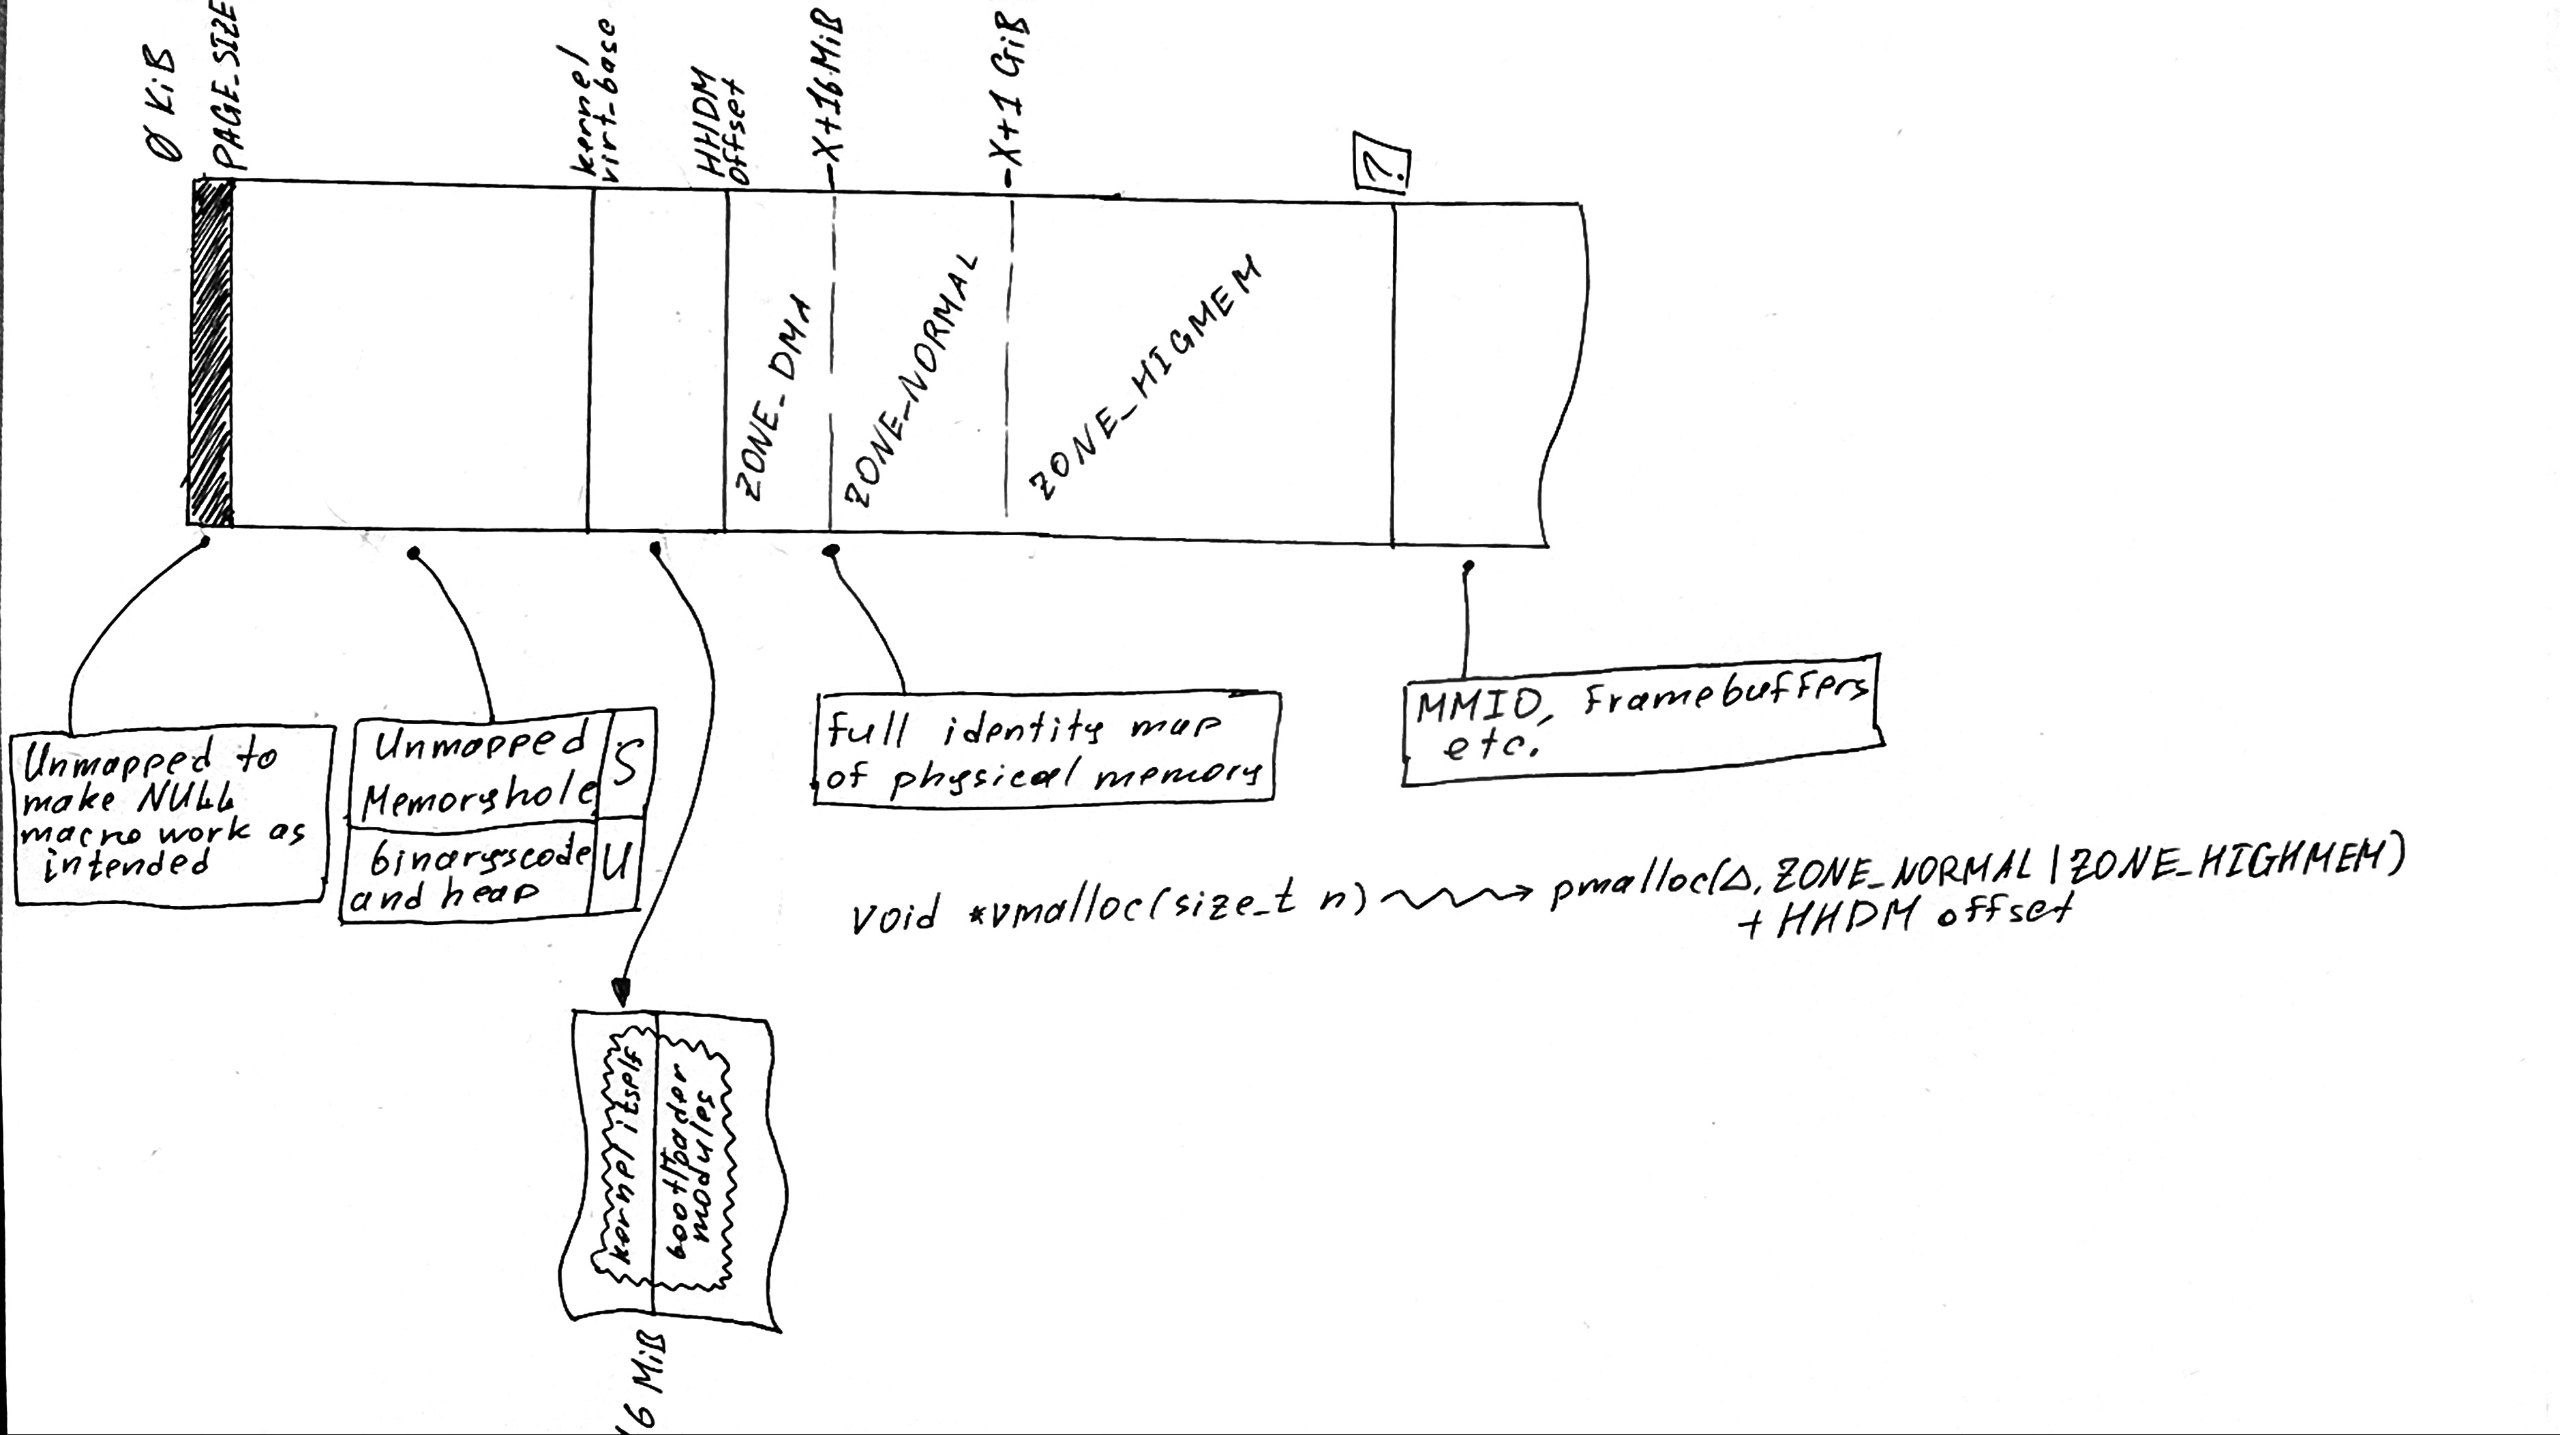 0 KiB
PAGE_SIZE
kernel
virt_base
HHDM
offset
-X+16 MiB
-X+1 GiB
?
ZONE_DMA
ZONE_NORMAL
ZONE_HIGMEM
Unmapped to
make NULL
macro work as
intended
Unmapped
Memoryhole
S
binaryscode
and heap
U
full identity map
of physical memory
MMIO, Framebuffers
etc.
void *vmalloc(size_t n) → pmalloc(Δ, ZONE_NORMAL | ZONE_HIGHMEM)
+ HHDM offset
kernel itself
bootloader
modules
16 MiB